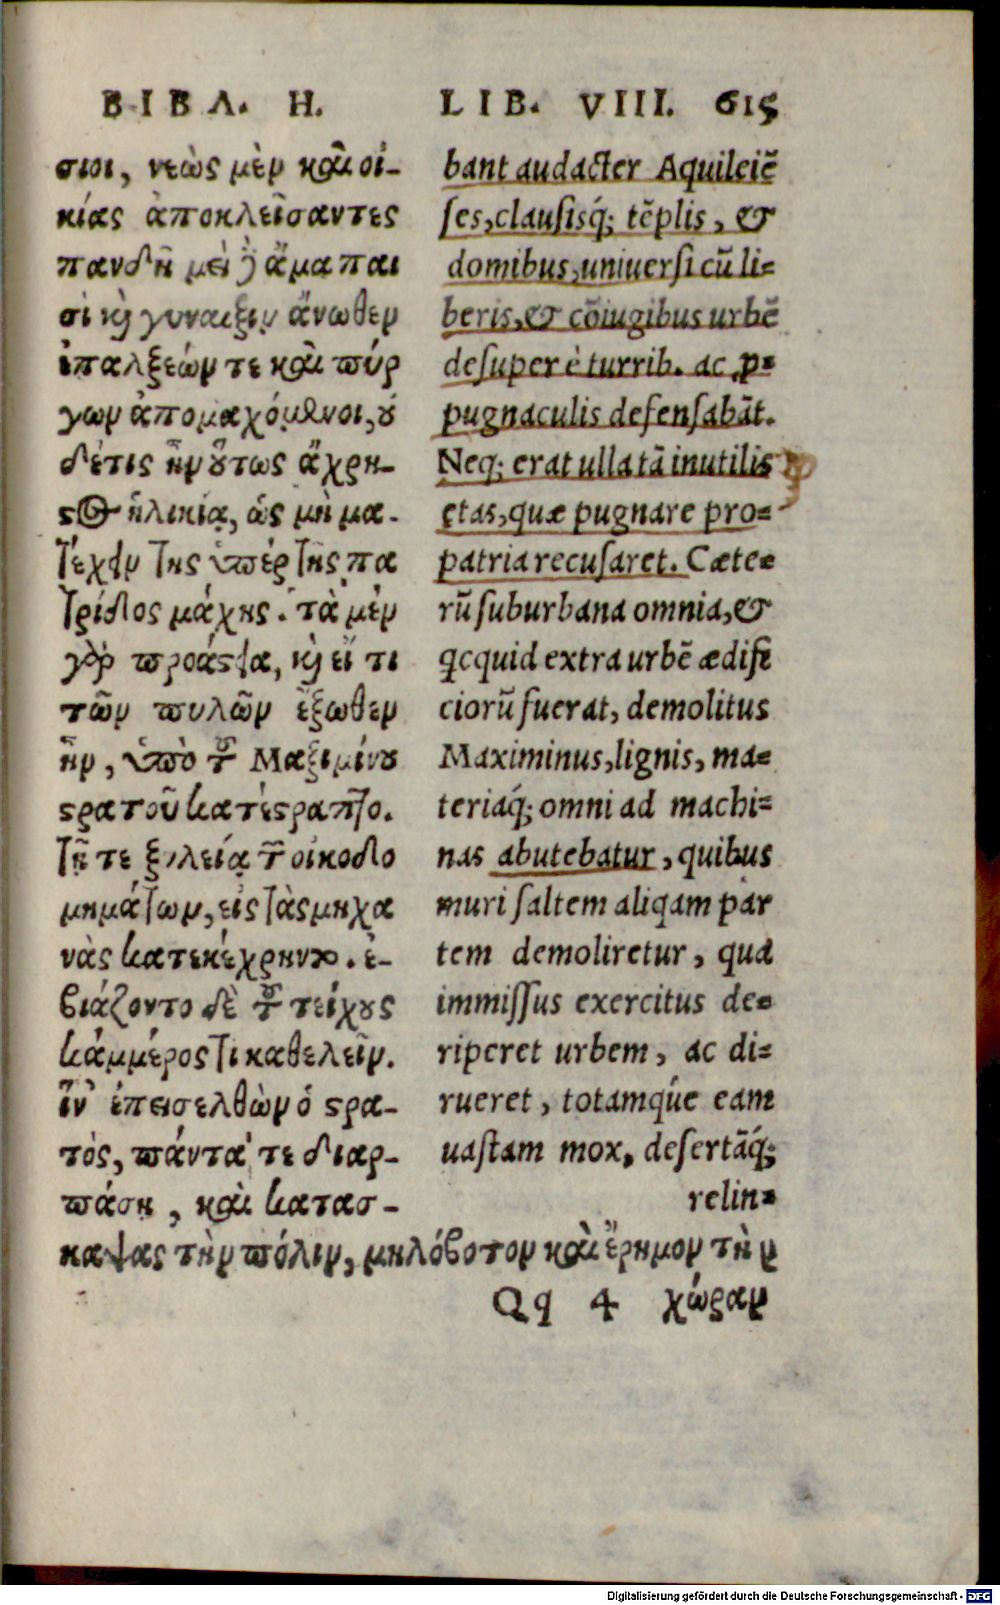 ΒΙΒΛ. Η.
σιοι, νεὼς μὲν καὶ οἰ-
κίας ἀποκλείσαντες
πανδημεὶ ἅμα παι
σὶ κὶ γυναιξὶν ἄνωθεν
ἐπαλξεών τε καὶ πύρ
γων ἀπομαχόμενοι, ȣ
δέτις ἦν ȣ̔́τως ἄχρη-
ςος ἡλικία, ὡς μὴ με-
τέχειν τῆς ὑπὲρ τῆς πα
τρίδος μάχης. τὰ μὲν
γὰρ προάςεια, κὶ εἴ τι
τῶν πυλῶν ἔξωθεν
ἦν, ὑπὸ τȣ͂ Μαξιμίνȣ
ςρατοῦ κατέςραπτο.
τῇ τε ξυλείᾳ τῶν οἰκοδο
μημάτων, εἰς τὰς μηχα
νὰς κατεκέχρηντο. ἐ-
βιάζοντο δὲ τȣ͂ τείχȣς
κἀμμέρος τι καθελεῖν.
ἵν' ἐπεισελθὼν ὁ ςρα-
τὸς, πάντα τε διαρ-
πάσῃ, καὶ κατασ-
καψας τὴν πόλιν, μηλόβοτον καὶ ἔρημον τὴν
LIB. VIII. 615
bant audacter Aquileiẽ
ses, clausisq́; tẽplis, &
domibus, uniuersi cũ li-
beris, & cõiugibus urbẽ
desuper è turrib. ac ꝓ-
pugnaculis defensabãt.
Neq; erat ulla tã inutilis
ętas, quæ pugnare pro-
patria recusaret. Cæte-
rũ suburbana omnia, &
qcquid extra urbẽ ædifi
ciorũ fuerat, demolitus
Maximinus, lignis, ma-
teriaq́; omni ad machi-
nas abutebatur, quibus
muri saltem aliqam par
tem demoliretur, qua
immissus exercitus de-
riperet urbem, ac di-
rueret, totamque eam
uastam mox, desertãq́;
relin-
Qq 4 χώραν
Digitalisierung gefördert durch die Deutsche Forschungsgemeinschaft - DFG